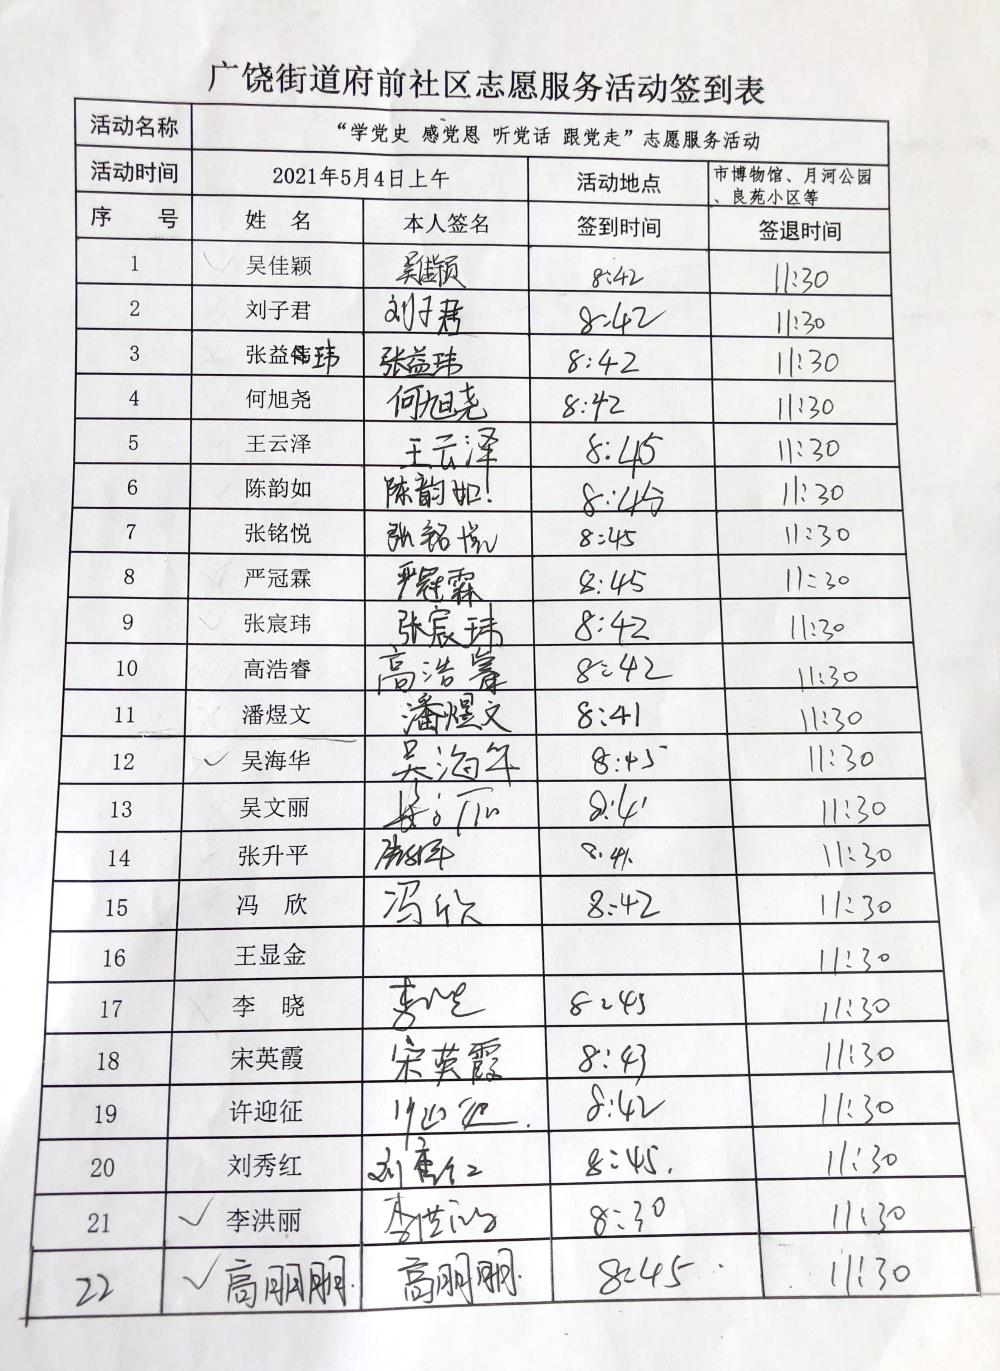 广饶街道府前社区志愿服务活动签到表
活动名称 “学党史 感党恩 听党话 跟党走”志愿服务活动
活动时间 2021年5月4日上午 活动地点 市博物馆、月河公园
、良苑小区等
序 号 姓 名 本人签名 签到时间 签退时间
1 吴佳颖 吴佳颖 8:42 11:30
2 刘子君 刘子君 8:42 11:30
3 张益玮 张益玮 8:42 11:30
4 何旭尧 何旭尧 8:42 11:30
5 王云泽 王云泽 8:45 11:30
6 陈韵如 陈韵如! 8:45 11:30
7 张铭悦 张铭悦 8:45 11:30
8 严冠霖 严冠霖 8:45 11:30
9 张宸玮 张宸玮 8:42 11:30
10 高浩睿 高浩睿 8:42 11:30
11 潘煜文 潘煜文 8:41 11:30
12 吴海华 吴海华 8:45 11:30
13 吴文丽 8:41 11:30
14 张升平 张升平 8:41. 11:30
15 冯 欣 冯欣 8:42 11:30
16 王显金 11:30
17 李 晓 李晓 8:45 11:30
18 宋英霞 宋英霞 8:43 11:30
19 许迎征 许迎征. 8:42 11:30
20 刘秀红 刘秀红 8:45. 11:30
21 李洪丽 李洪丽 8:30 11:30
22 高朋朋. 高朋朋. 8:45 11:30